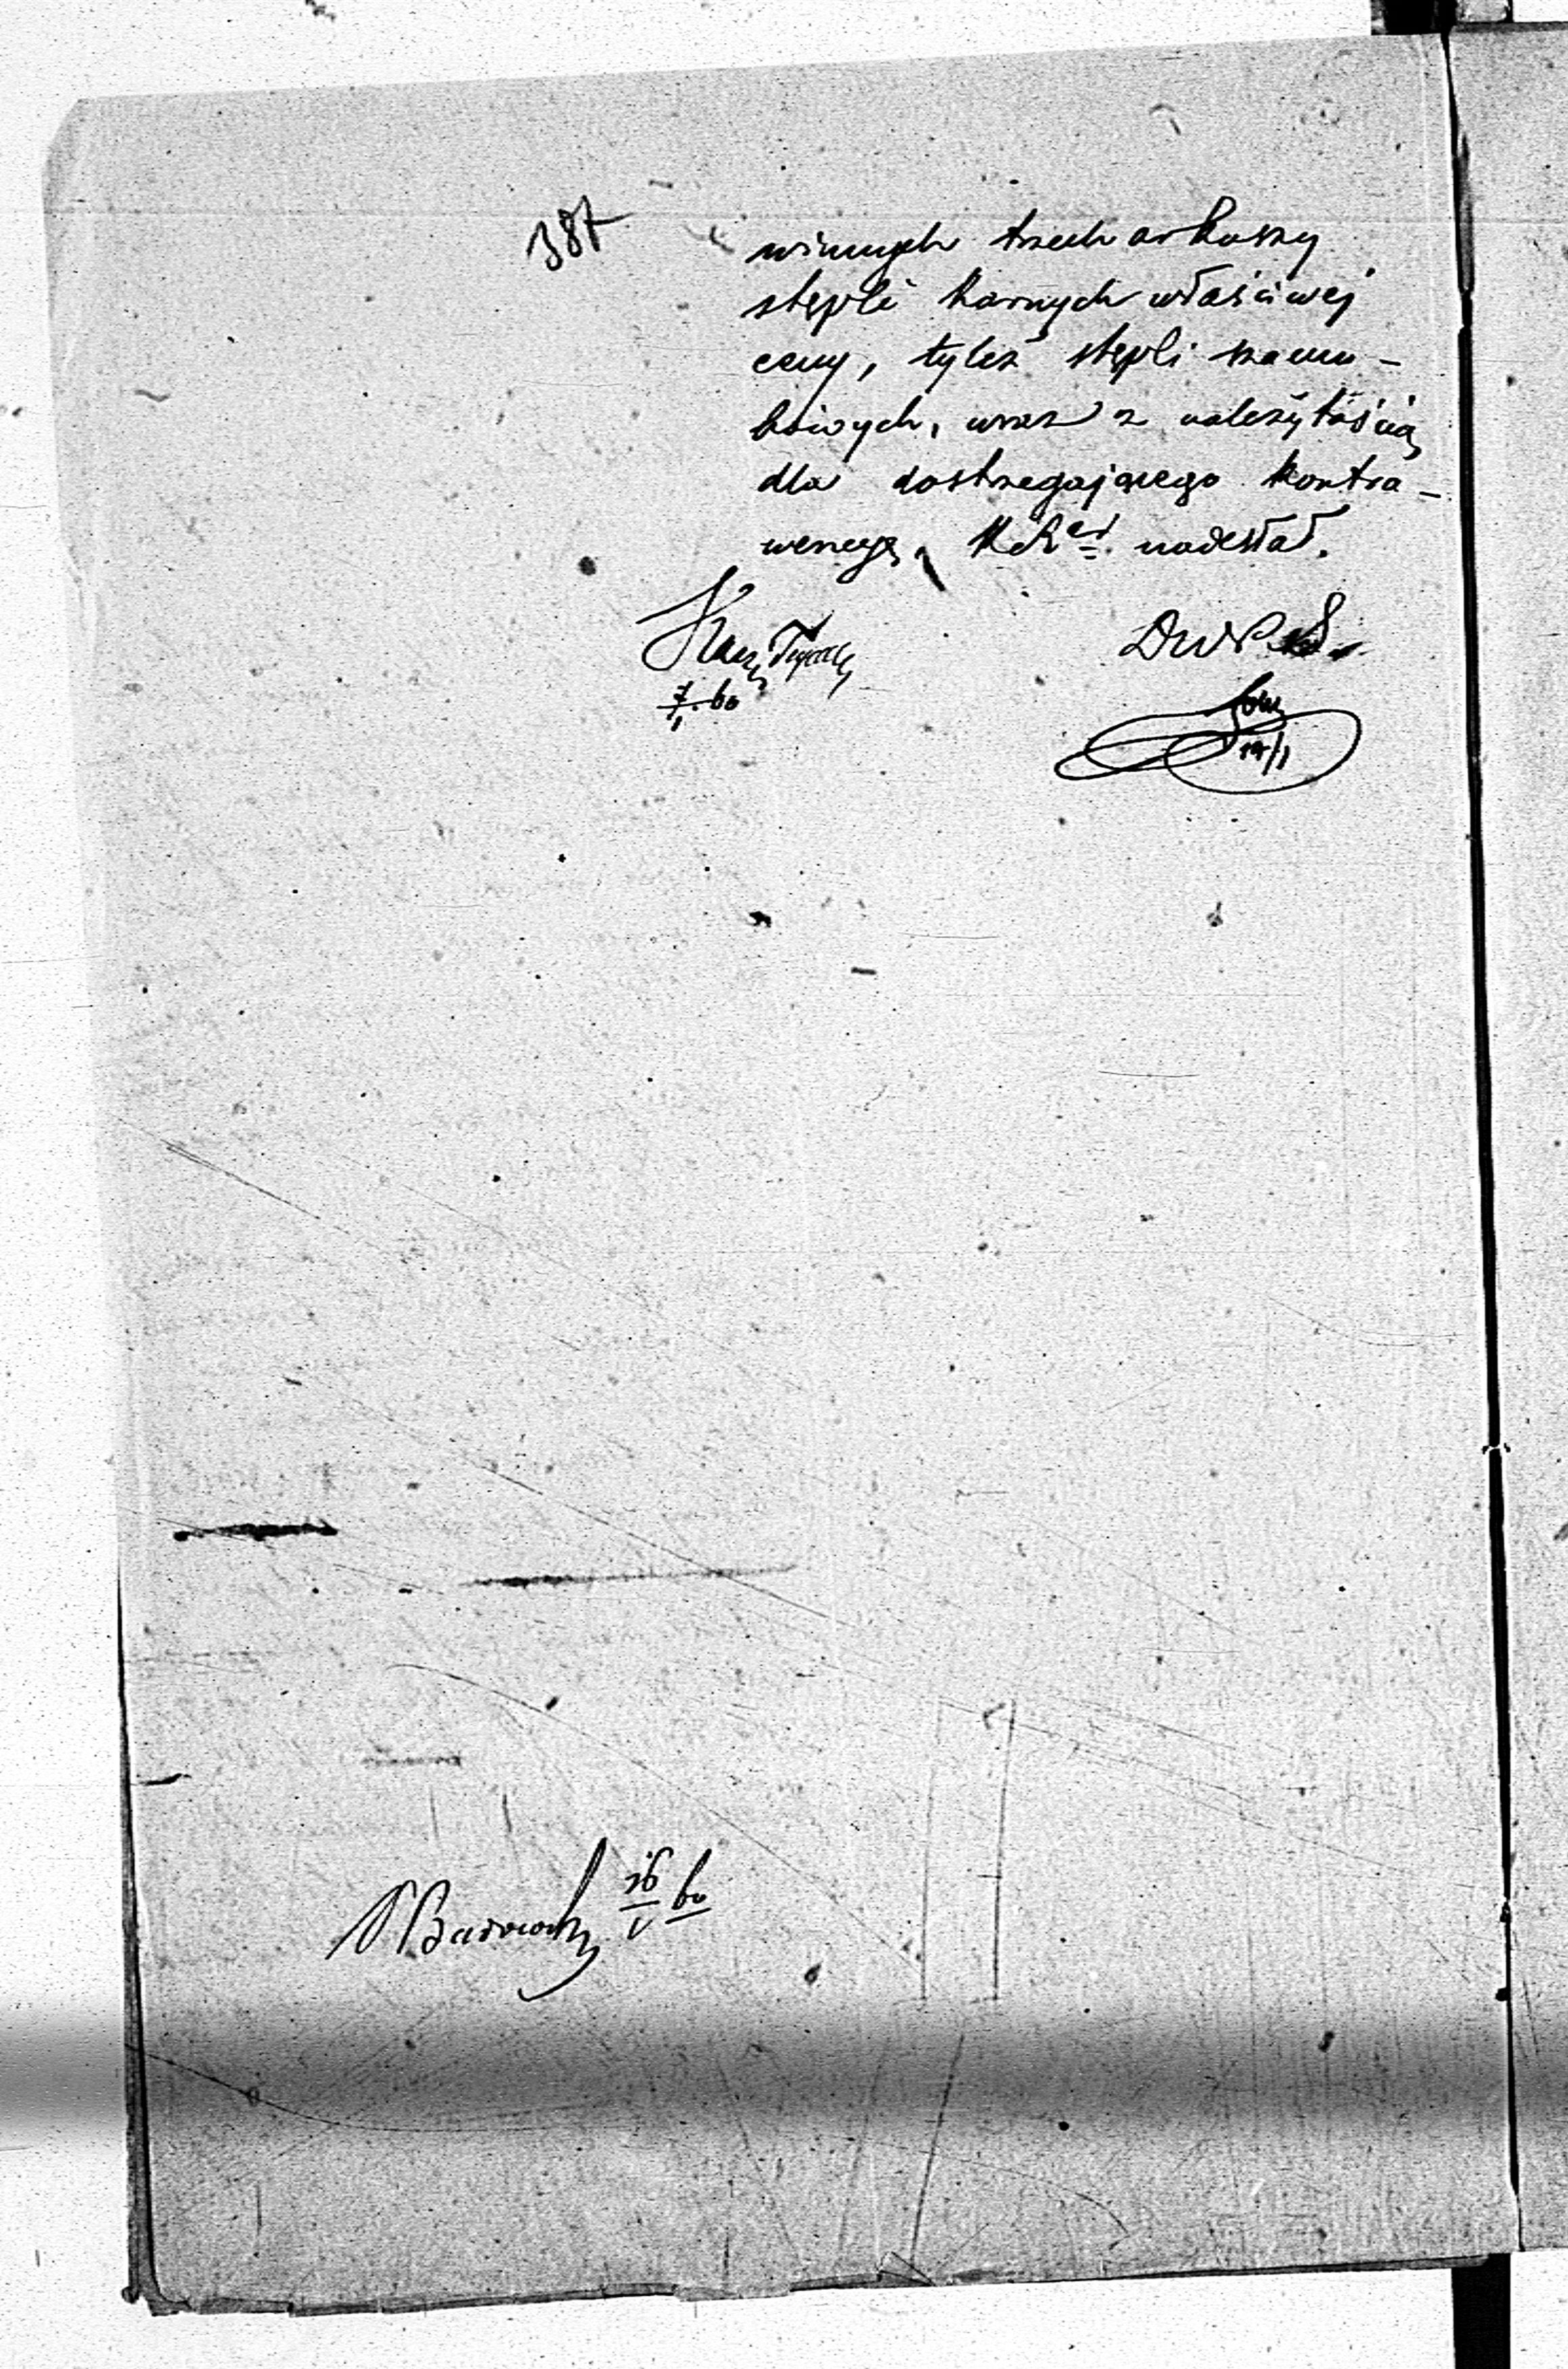 387
winnych trzech arkuszy
stępli karnych właściwej
ceny, tyleż stępli szacun-
kowych, wraz z należytością
dla dostrzegającego kontra-
wencyę, nadesłał.
7/1 60
DWPS.
14/1
16/1 60